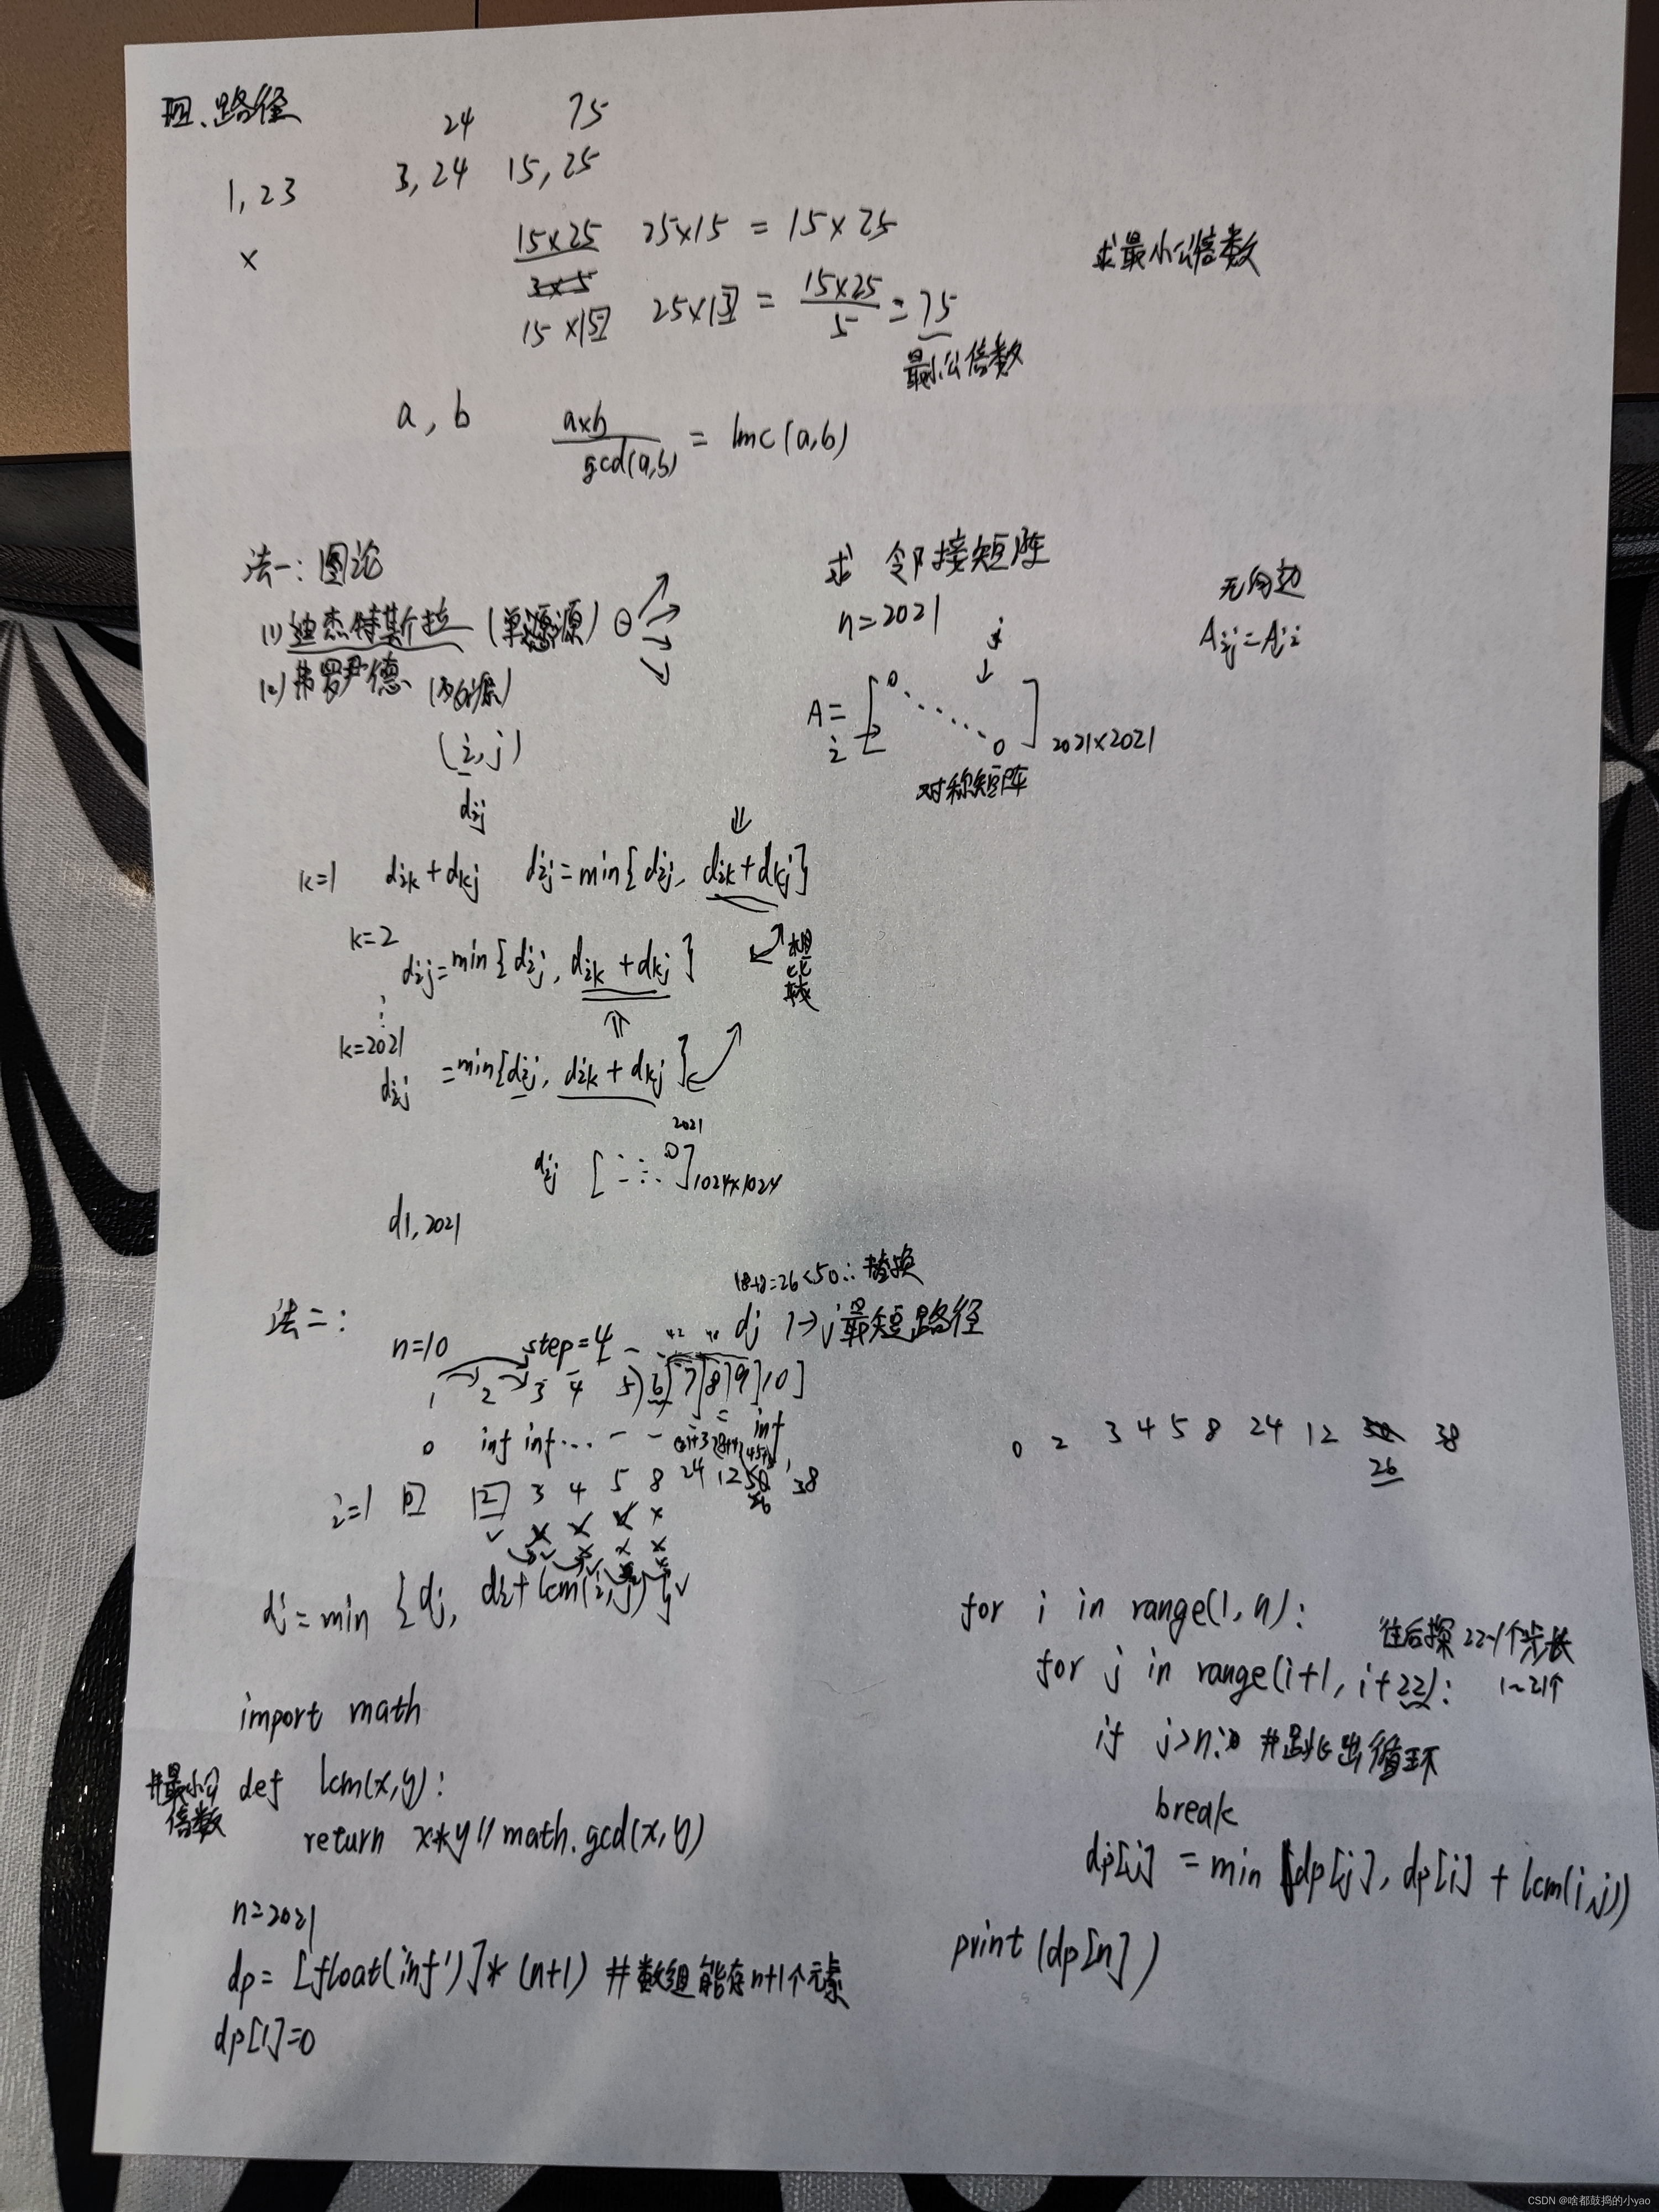 四、路径
24 75
1,23 3,24 15,25
×
15×25 25×15 = 15×25
3×5
求最小公倍数
15×15 25×13 = 15×25/5 = 75
最小公倍数
a, b a×b/gcd(a,b) = lmc(a,b)
法一:图论
(1) 迪杰特斯拉 (单源)
(2) 弗罗伊德 (多源)
(i,j)
dij
求 邻接矩阵
n=2021
j
↓
A= [0 ⋱ 0] 2021×2021
i→
对称矩阵
无向边
Aij=Aji
k=1 dik+dkj dij=min{dij, dik+dkj}
k=2
dij=min{dij, dik+dkj}
⋮
k=2021
dij =min{dij, dik+dkj}
2021
dij [ 0] 1024×1024
d1,2021
18+8=26<50∴替换
法二: dj 1→j最短路径
n=10 step=4
1 2 3 4 5 6 7 8 9 10
0 inf inf... inf
i=1 0 2 3 4 5 8 24 12 50 38
26
0 2 3 4 5 8 24 12 50 38
26
dj=min {dj, di+lcm(i,j)}
import math
#最小公倍数 def lcm(x,y):
return x*y//math.gcd(x,y)
n=2021
dp=[float('inf')]*(n+1) #数组能存n+1个元素
dp[1]=0
for i in range(1,n):
往后探22-1个步长
for j in range(i+1,i+22): 1~21个
if j>n: #跳出循环
break
dp[j] = min(dp[j], dp[i] + lcm(i,j))
print(dp[n])
CSDN @啥都鼓捣的小yao